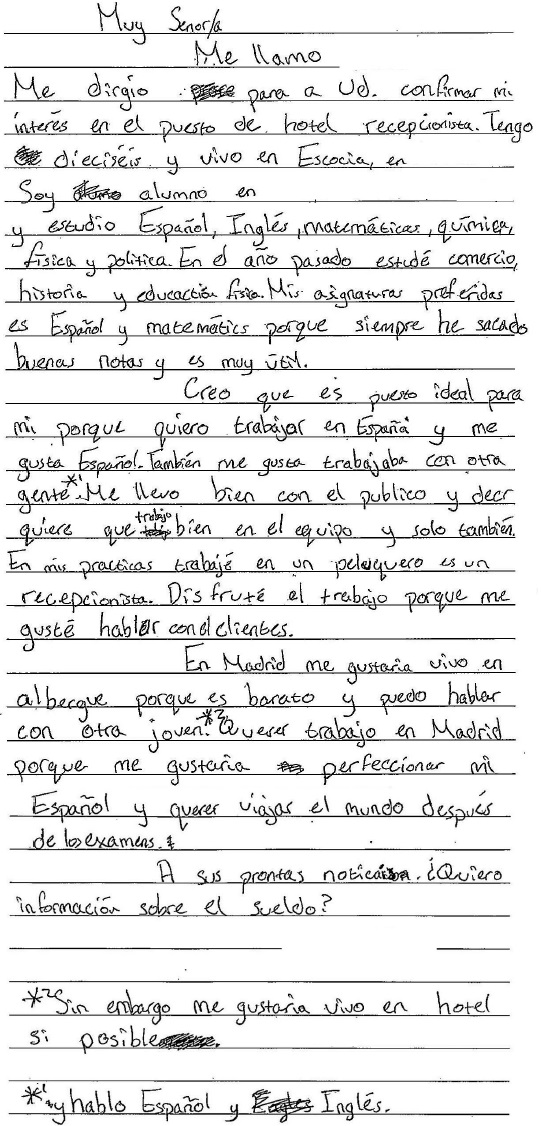 Muy Senor/a
Me llamo
Me dirgio para a Ud. confirmar mi
interés en el puesto de hotel recepcionista. Tengo
dieciséis y vivo en Escocia, en
Soy alumno en
y estudio Español, Inglés, matemáticas, química,
física y politica. En el año pasado estudé comercio,
historia y educactión física. Mis asignaturas preferidas
es Español y matemátics porque siempre he sacado
buenas notas y es muy útil.
Creo que es puesto ideal para
mi porque quiero trabajar en España y me
gusta Español. También me gusta trabajaba con otra
gente *1. Me llevo bien con el publico y decr
quiere que trabajo bien en el equipo y solo también.
En mis practicas trabajé en un peluquero es un
recepcionista. Disfruté el trabajo porque me
gusté hablar con el clientes.
En Madrid me gustaria vivo en
albergue porque es barato y puedo hablar
con otra joven. *2 Querer trabajo en Madrid
porque me gustaría perfeccionar mi
Español y querer viajar el mundo después
de los examens.
A sus prontas noticias. ¿Quiero
información sobre el sueldo?
*2 Sin embargo me gustaría vivo en hotel
si posible.
*1 y hablo Español y Inglés.